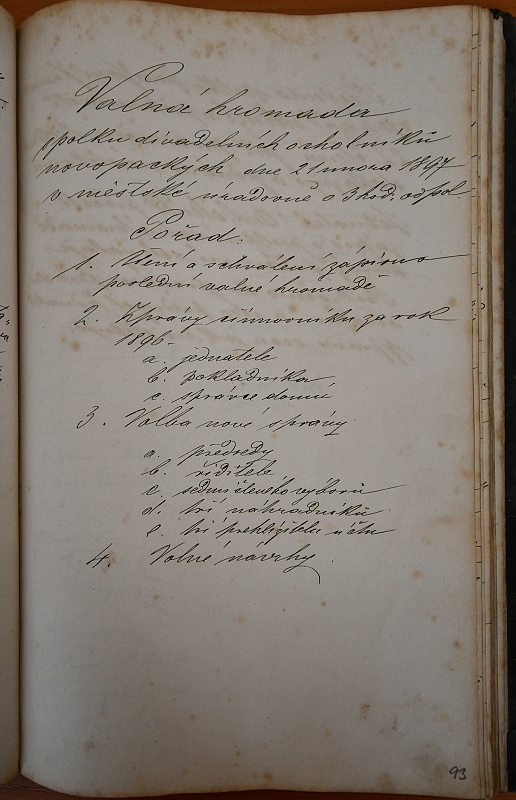 Valná hromada
spolku divadelních ochotníků
novopackých dne 21 února 1897
v městské úřadovně o 3 hod. odpol.
Pořad.
1. Čtení a schválení zápisu o
poslední valné hromadě
2. Zprávy činovníků za rok
1896
a. jednatele
b. pokladníka
c. správce domu
3. Volba nové správy
a. předsedy
b. řiditele
c. sedmičleného výboru
d. tří náhradníků
e. tří přehlížitelů účtu
4. Volné návrhy.
93